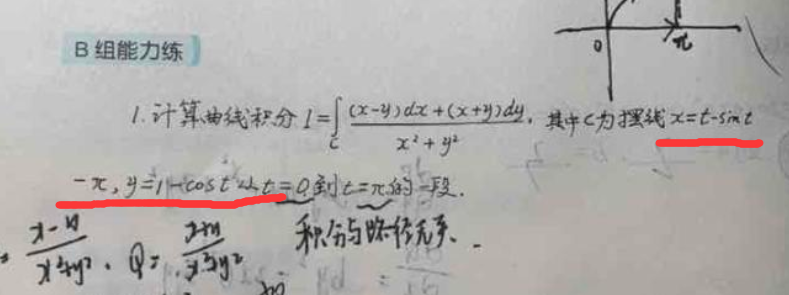 0 π
B 组能力练
1. 计算曲线积分 I=∫_C \frac{(x-y)dx+(x+y)dy}{x²+y²}, 其中C为摆线 x=t-sint
-π, y=1-cost 从t=0到t=π的一段.
\frac{x-y}{x²+y²}, Q=\frac{x+y}{x²+y²} 积分与路径无关.